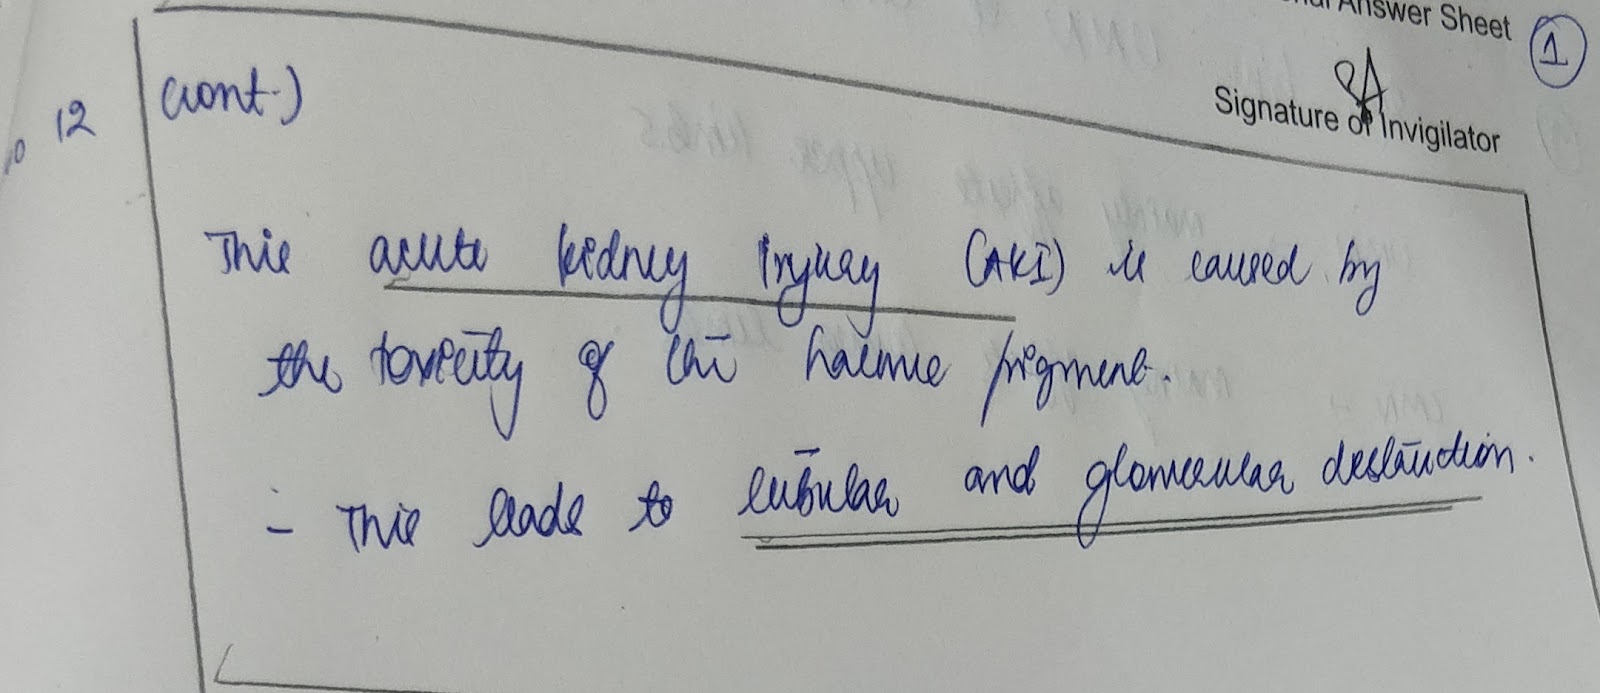 nal Answer Sheet
1
Signature of Invigilator
12
cont.)
This acute kidney Injury (AKI) is caused by
the toxicity of the haeme pigment.
- This leads to tubular and glomerular destruction.